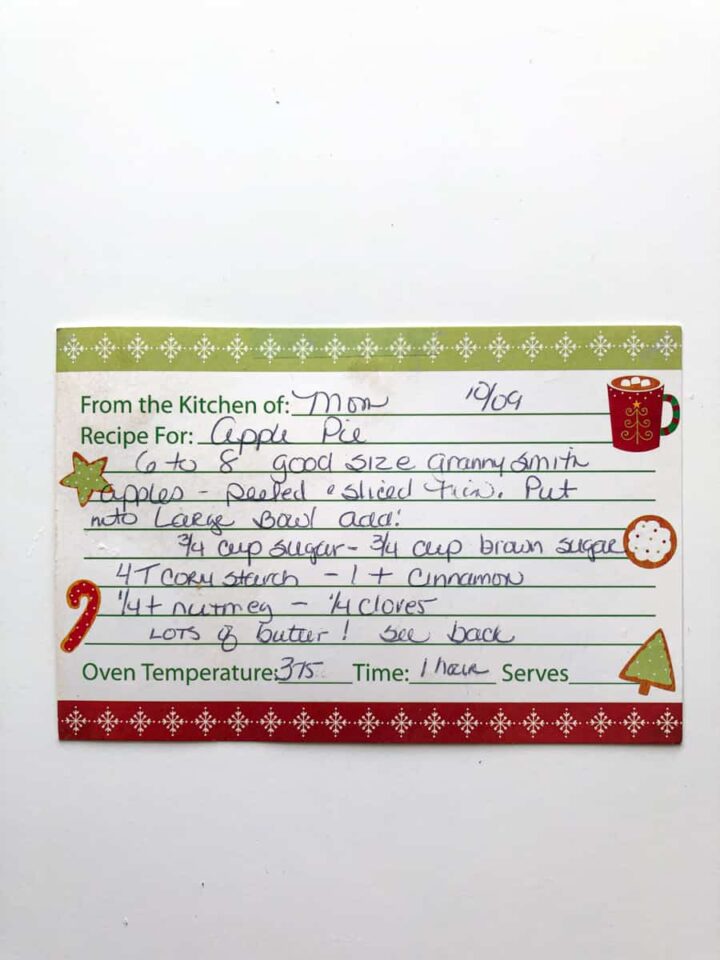 From the Kitchen of: Mom 10/09
Recipe For: Apple Pie
6 to 8 good size granny smith
apples - peeled & sliced thin. Put
into Large Bowl add:
3/4 cup sugar - 3/4 cup brown sugar
4 T corn starch - 1 t cinnamon
1/4 t nutmeg - 1/4 cloves
LOTS of butter! see back
Oven Temperature: 375 Time: 1 hour Serves